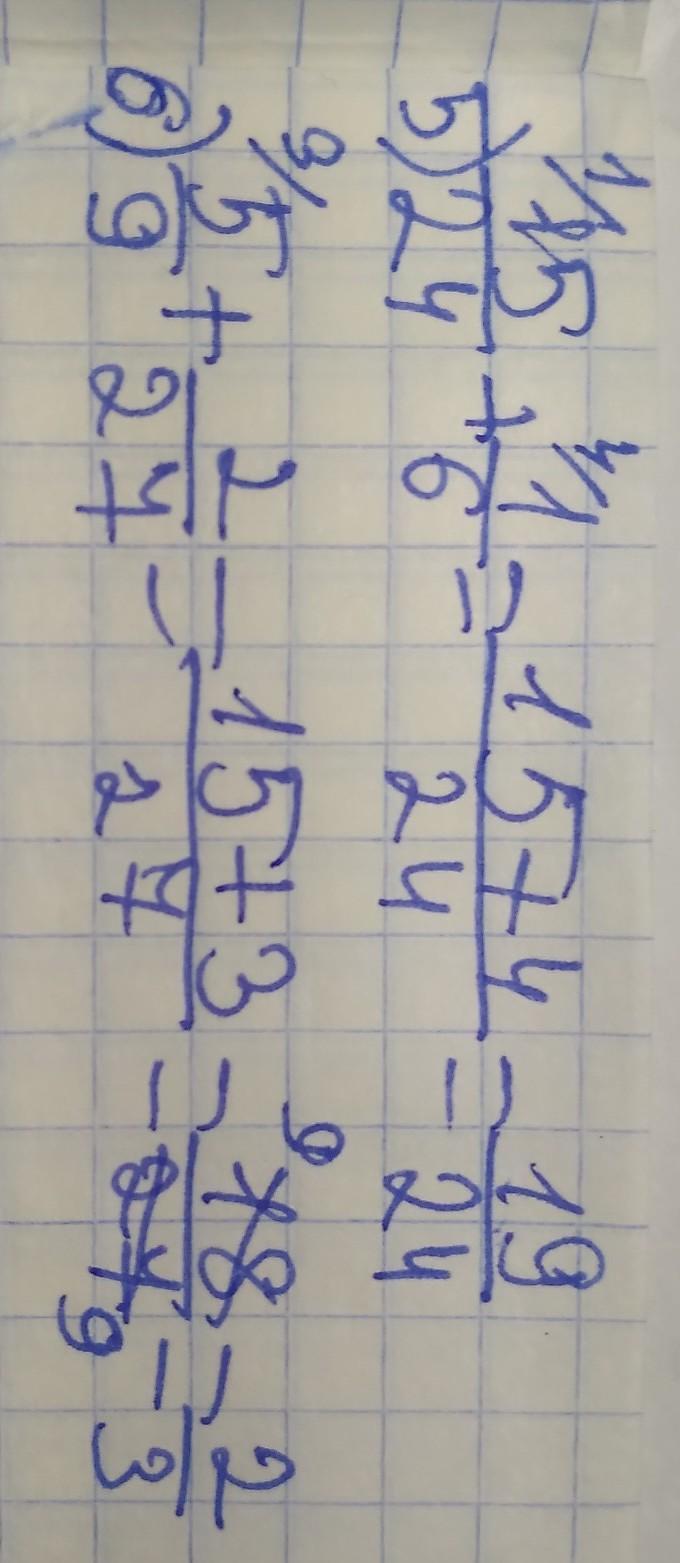 5) ¹⁄15/24 + ⁴⁄1/6 = 15+4/24 = 19/24
6) ³⁄5/9 + 2/27 = 15+3/27 = 18⁹/27₉ = 2/3